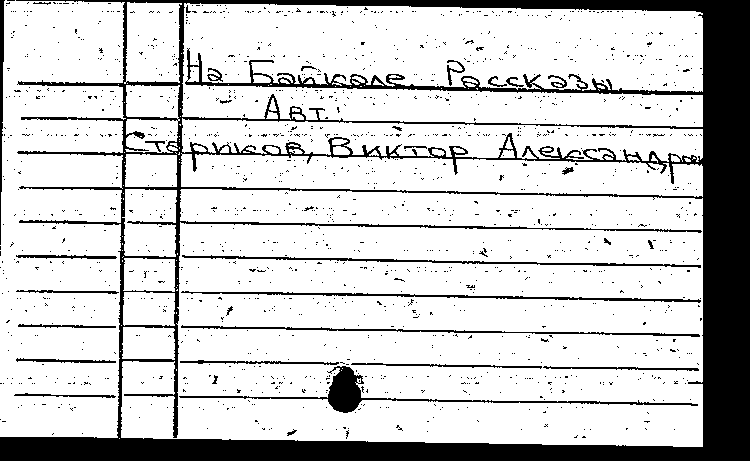 На Байкале. Рассказы.
Авт.:
Стариков, Виктор Александров